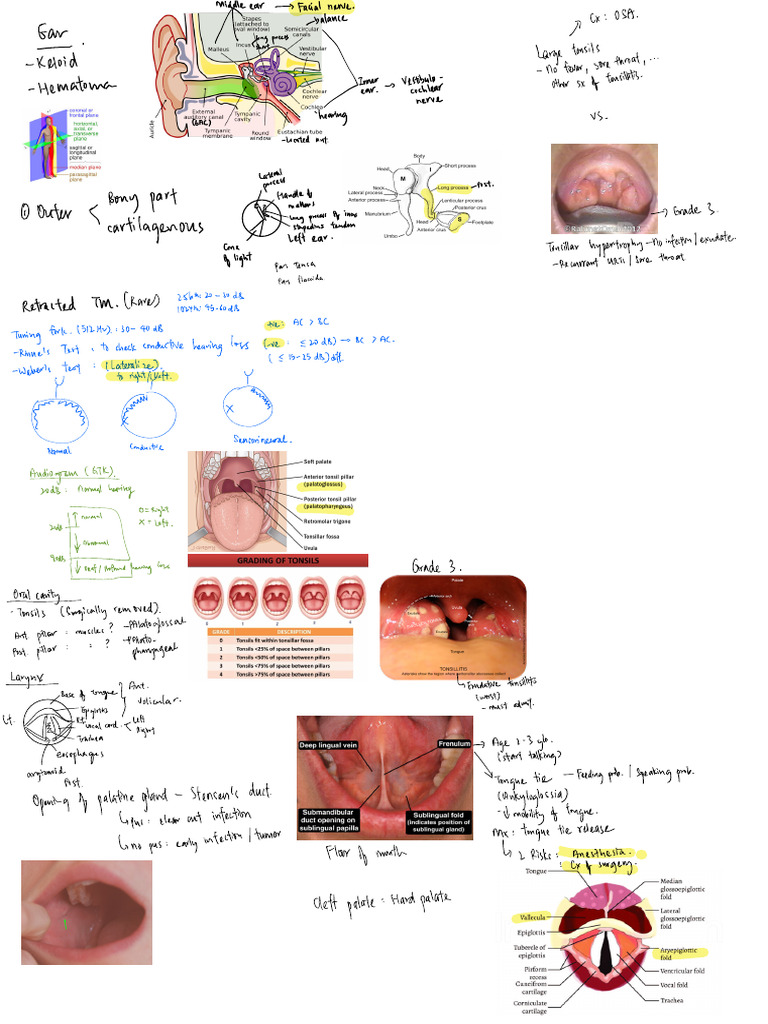 Ear
- Keloid
- Hematoma
Middle ear → Facial nerve.
balance
Stapes
(attached to
oval window)
Semicircular
canals
Incus
long process
Malleus
Vestibular
nerve
Cochlear
nerve
Cochlea
hearing
Inner
ear.
→ Vestibulo-
cochlear
nerve
Auricle
External
auditory canal
(EAC)
Tympanic
membrane
Tympanic
cavity
Round
window
Eustachian tube
Cx: OSA.
Large tonsils
- No fever, sore throat, ...
other sx of tonsilitis.
vs.
→ Grade 3.
Tonsillar hypertrophy - No infectn / exudate.
- Recurrent URTI / Sore throat
coronal or
frontal plane
horizontal,
axial, or
transverse
plane
sagittal or
longitudinal
plane
median plane
parasagittal
plane
① Outer
Bony part
cartilagenous
Lateral
process
Handle of
malleus
Long process of incus
stapedius tendon
Left ear.
Cone
of light
Pars tensa
Pars flaccida
Body
Short process
Head
M
I
Long process
Post.
Neck
Lateral process
Anterior process
Lenticular process
Posterior crus
Manubrium
Head
S
Footplate
Anterior crus
Umbo
Retracted TM. (Rare)
256Hz: 20 - 30 dB
1024Hz: 45-60dB
Tuning fork. (512 Hz): 30 - 40 dB
- Rinne's Test : to check conductive hearing loss
+ve: AC > BC
-ve: ≤ 20 dB → BC > AC.
(≤ 15-25 dB) diff.
- Weber's test : (Lateralize)
to right/left.
Normal
Conductive
Sensorineural.
Audiogram
20dB : Normal hearing
Normal
20dB
Abnormal
90dB
Deaf / Profound hearing loss
O = Right
X = Left.
Soft palate
Anterior tonsil pillar
(palatoglossus)
Posterior tonsil pillar
(palatopharyngeus)
Retromolar trigone
Tonsillar fossa
Uvula
GRADING OF TONSILS
0 1 2 3 4
GRADE DESCRIPTION
0 Tonsils fit within tonsillar fossa
1 Tonsils <25% of space between pillars
2 Tonsils <50% of space between pillars
3 Tonsils <75% of space between pillars
4 Tonsils >75% of space between pillars
Grade 3.
Palate
Uvula
Tongue
TONSILLITIS
Exudative tonsilitis
(worst)
- must admit.
Oral cavity
- Tonsils (Surgically removed).
Ant. pillar : muscles? - Palatoglossal
Post. pillar : " ? - Palato-
pharyngeal
Larynx
Base of tongue
Epiglottis
Vocal cord
Trachea
Esophagus
arytenoid
Post.
Ant.
Vallecular.
Lt.
Rt.
Opening of palatine gland - Stensen's duct
pus : clear cut infection
no pus : early infection / tumor
Deep lingual vein
Frenulum
Submandibular
duct opening on
sublingual papilla
Sublingual fold
(indicates position of
sublingual gland)
Floor of mouth
→ Age 2-3 y/o.
(start talking)
Tongue tie - Feeding prob. / Speaking prob.
(Ankyloglossia)
- ↓ mobility of tongue.
Mx: tongue tie release
2 Risks: Anesthesia.
Cx of surgery.
Cleft palate = Hard palate
Tongue
Median
glossoepiglottic
fold
Vallecula
Lateral
glossoepiglottic
fold
Epiglottis
Tubercle of
epiglottis
Aryepiglottic
fold
Pirform
recess
Ventricular fold
Cuneifrom
cartilage
Vocal fold
Corniculate
cartilage
Trachea